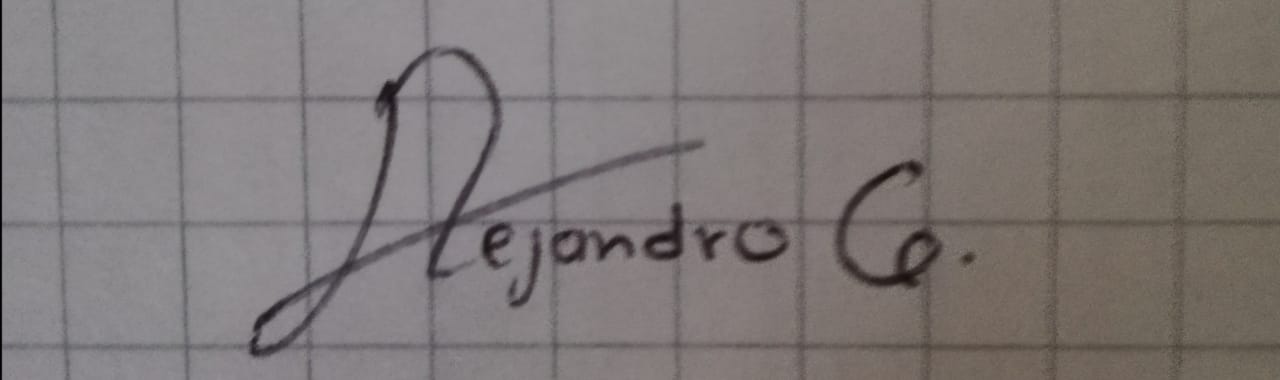 Alejandro G.